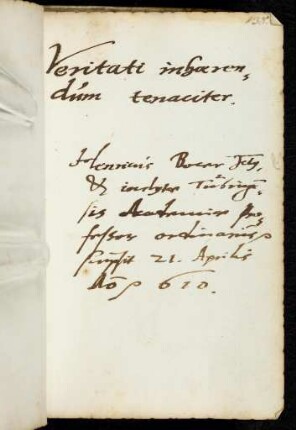 Veritati inhæren,
dum tenaciter.
Henricus Bocer Jctus,
& inclytæ Tübingen
sis Academiæ Pro
fessor ordinarius
scripsit 21. Aprilis
Aõ 610.